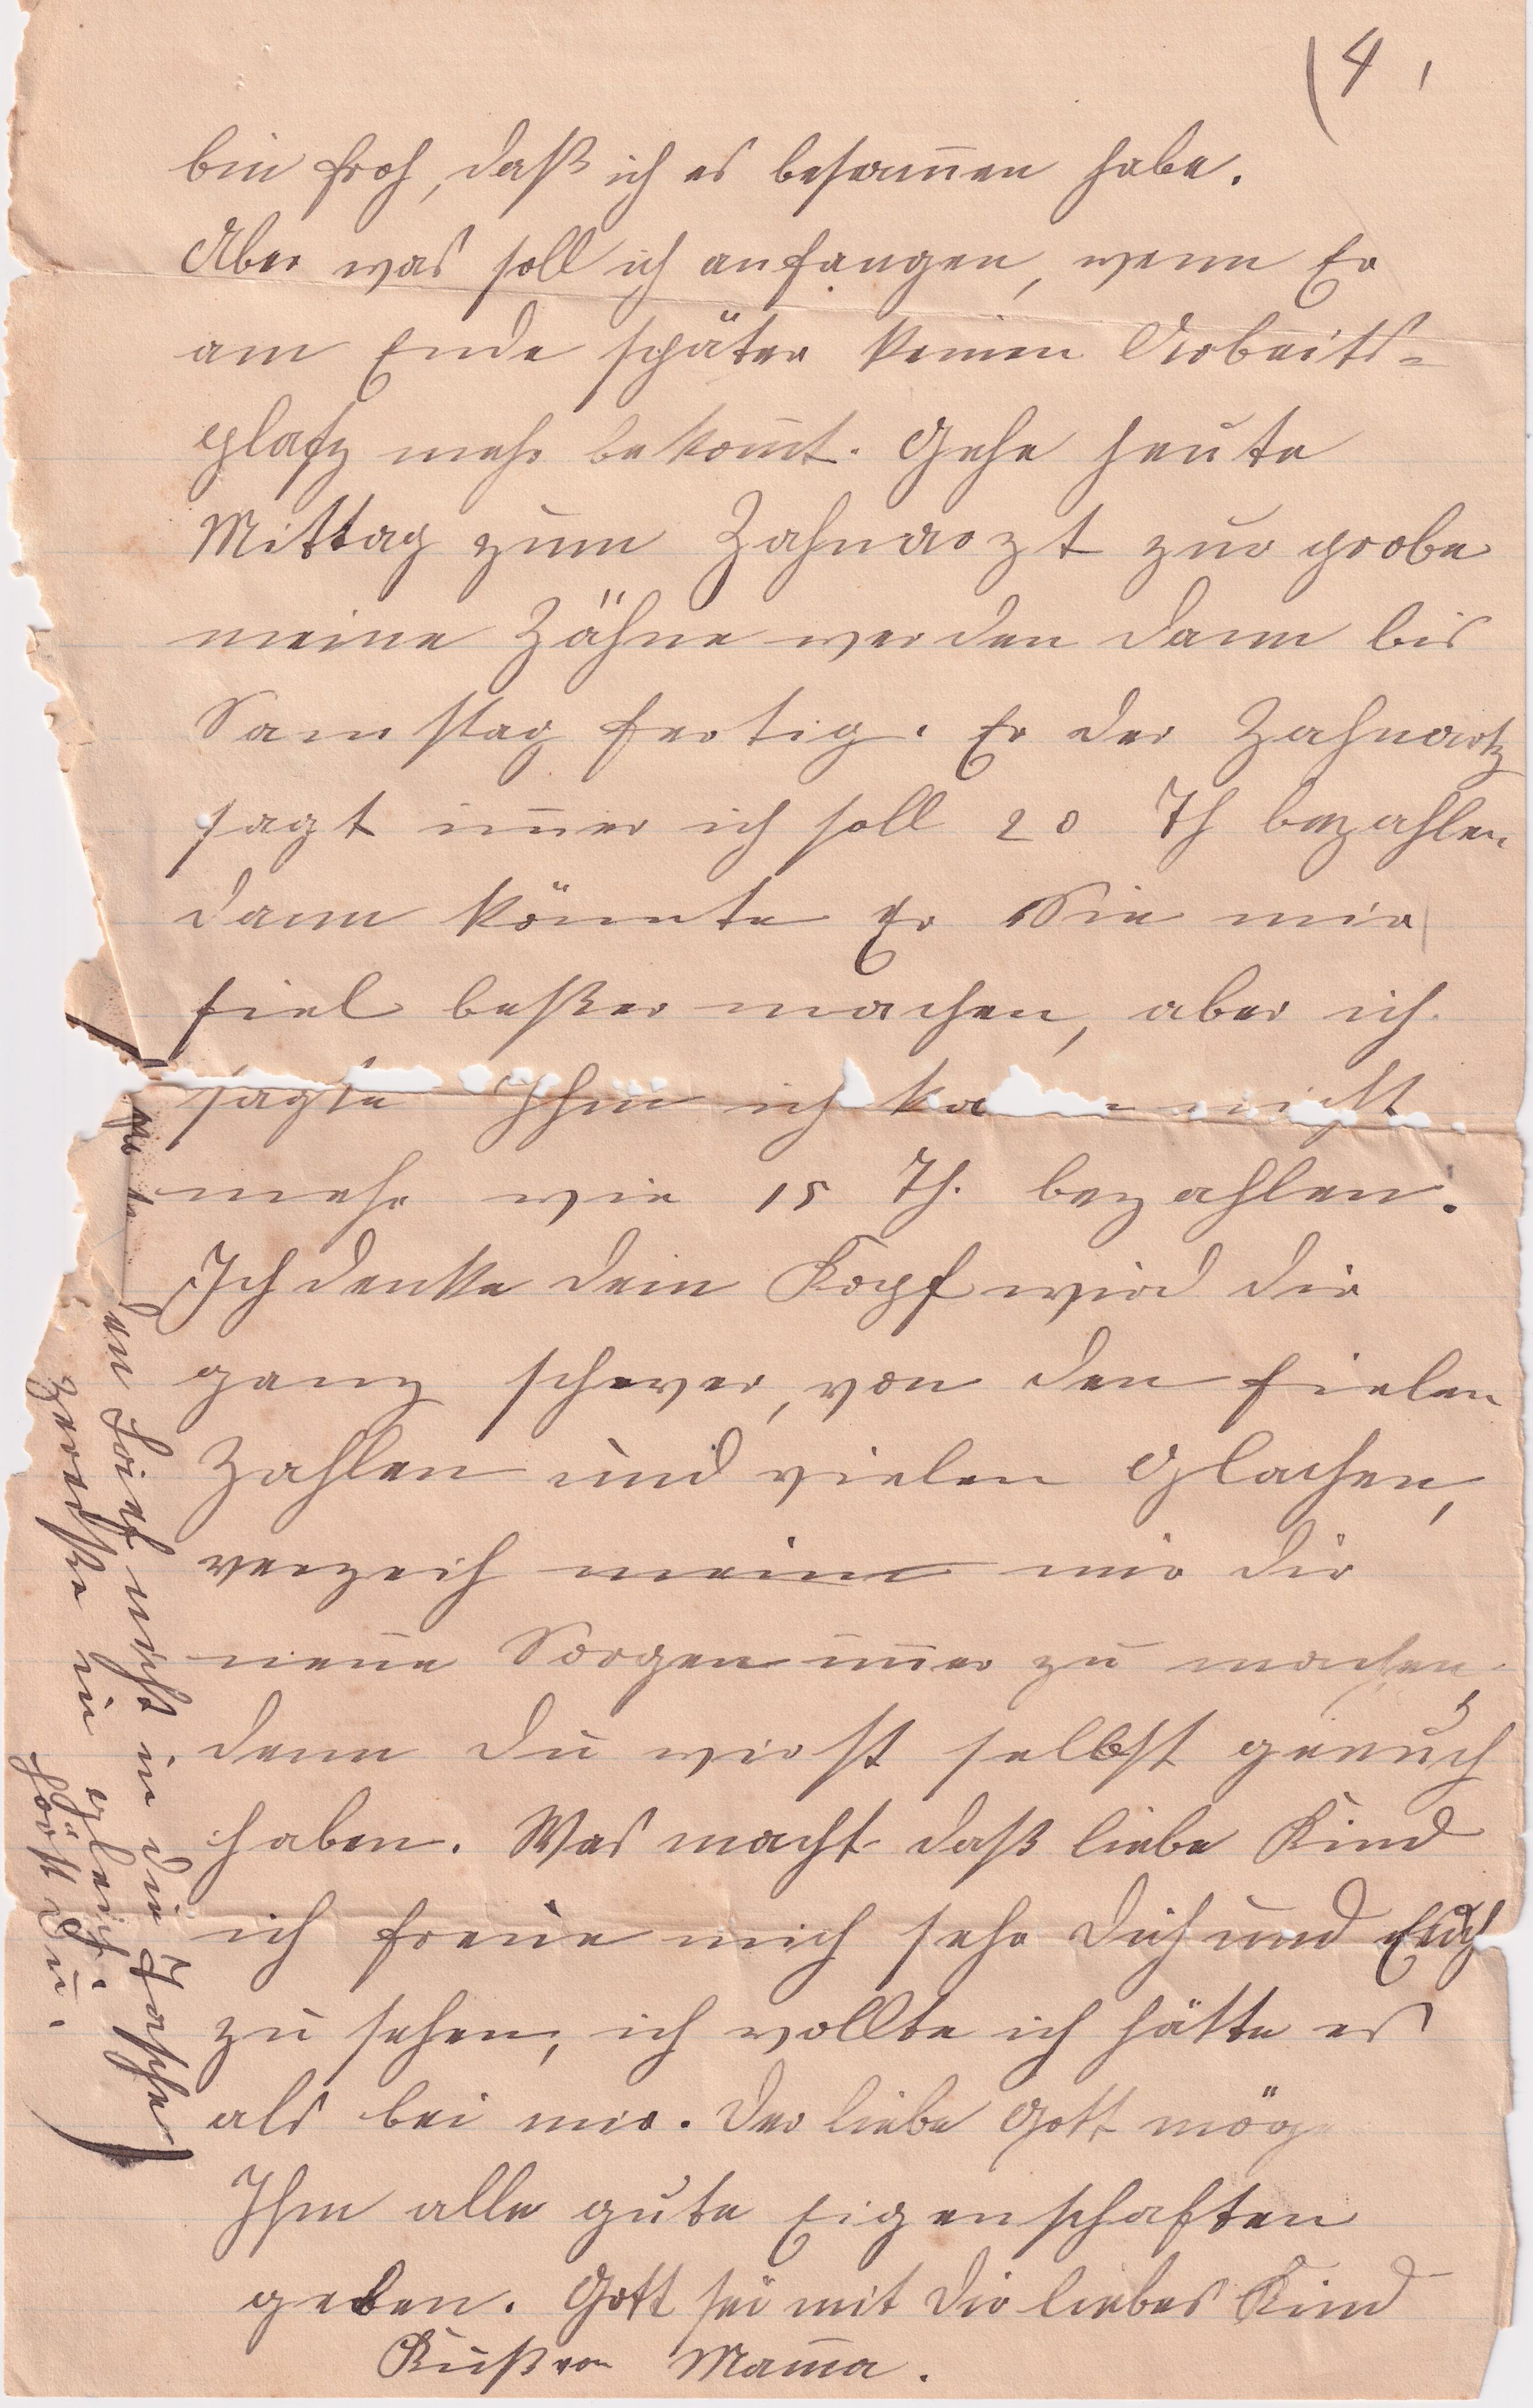 (4,
bin froh, daß ich es besonnen habe.
Aber was soll ich anfangen, wenn Er
am Ende später keinen Arbeits-
platz mehr bekomt. Gehe heute
Mittag zum Zahnarzt zur probe
meine Zähne werden dann bis
Samstag fertig. Er der Zahnartz
sagt im̅er ich soll 20 Th bezahlen
dann könnte Er Sie mir
fiel beßer machen, aber ich
sagte Ihm ich ka nicht
mehr wie 15 Th. bezahlen.
Ich denke dein Kopf wird dir
ganz schwer, von den fielen
Zahlen und vielen
verzeih meine mir dir
neue Sorgen im̅er zu machen,
denn du wirst selbst genuch
haben. Was macht daß liebe Kind
ich freue mich sehr dich und Euch
zu sehen, ich wollte ich hätte es
als bei mir. Der liebe Gott mög
Ihm alle gute Eigenschaften
geben. Gott sei mit dir liebes Kind
Kuß von Mam̅a.
den Brief nicht in die Tasche
zereiße in gleich.
hörst du.